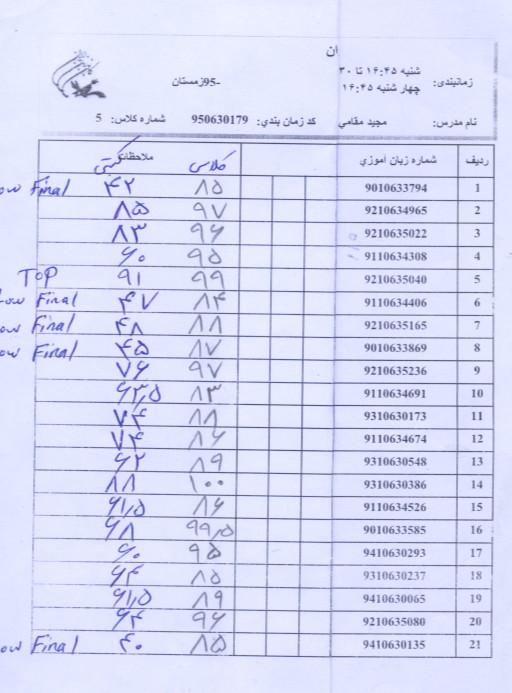 ان
زمانبندی: شنبه ۱۶:۴۵ تا ۳۰
چهار شنبه ۱۶:۴۵
-95زمستان
نام مدرس: مجید مقامي کد زمان بندي: 950630179 شماره کلاس: 5
ردیف شماره زبان آموزي کلاس ملاحظات کتبی
1 9010633794 ۸۵ ۴۲ ow Final
2 9210634965 ۹۷ ۸۵
3 9210635022 ۹۶ ۸۳
4 9110634308 ۹۵ ۶۰
5 9210635040 ۹۹ ۹۱ TOP
6 9110634406 ۸۴ ۴۷ Low Final
7 9210635165 ۸۸ ۴۸ ow Final
8 9010633869 ۸۷ ۴۵ ow Final
9 9210635236 ۹۷ ۷۶
10 9110634691 ۸۳ ۶۳٫۵
11 9310630173 ۸۸ ۷۴
12 9110634674 ۸۶ ۷۴
13 9310630548 ۸۹ ۶۲
14 9310630386 ۱۰۰ ۸۸
15 9110634526 ۸۶ ۶۱٫۵
16 9010633585 ۹۹٫۵ ۶۸
17 9410630293 ۹۵ ۶۰
18 9310630237 ۸۵ ۶۴
19 9410630065 ۸۹ ۶۱٫۵
20 9210635080 ۹۶ ۶۴
21 9410630135 ۸۵ ۴۰ ow Final